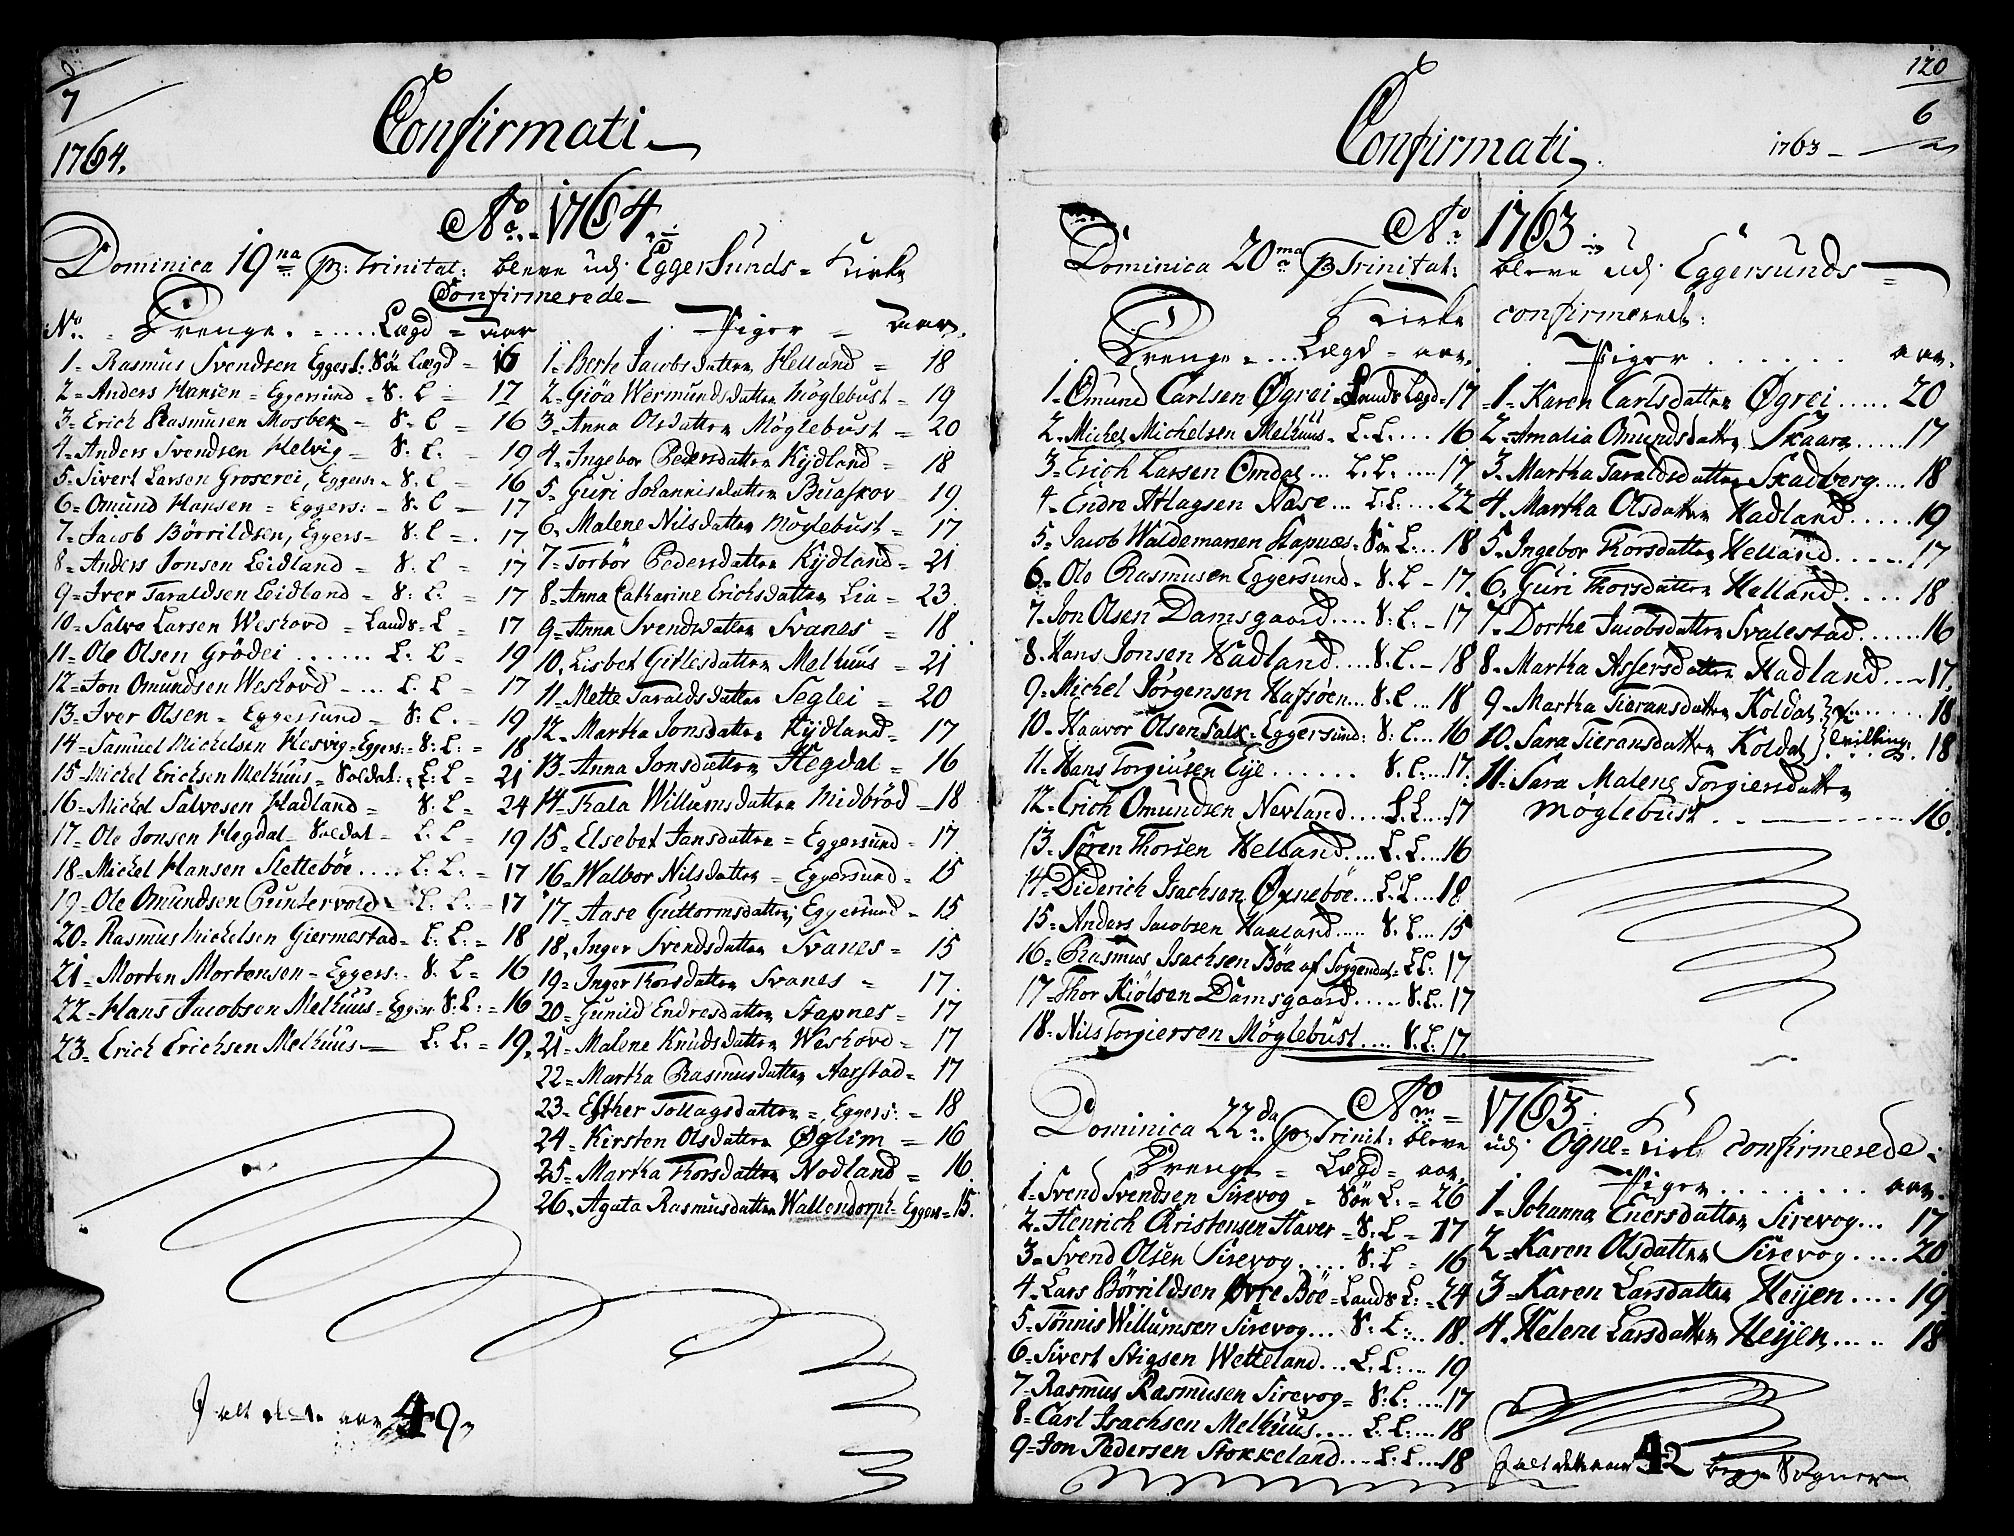 7
1764.
Confirmati
No. 1764.
Dominica 19na p: Trinitat: bleve udj EggerSunds = Kirke
Confirmerede
No. Drenge. = ..... Lægd = aar
1 = Rasmus Svendsen Eggers: Söe Lægd = 16
2 = Anders Hansen = Eggersund = S. L = 17
3 = Erich Rasmusen Mosbek = S. L = 16
4 = Anders Svendsen Helvig = S. L. = 19
5 = Sivert Larsen Groserei, Eggers: = S. L = 16
6 = Omund Hansen = Eggers: = S. L = 17
7 = Jacob Börrildsen, Eggers = S. L = 17
8 = Anders Jonsen Leidland = S. L = 17
9 = Iver Taraldsen Leidland = S. L. = 17
10 = Salve Larsen Weshovd = Lands = L = 17
11 = Ole Olsen Grödei ...... L. L = 19
12 = Jon Omundsen Weshovd .... L. L = 17
13 = Iver Olsen = Eggersund = S. L. = 19
14 = Samuel Michelsen Hesvig = Eggers: = S. L. = 18
15 = Michel Erichsen Melhuus = Soldat: = L. L = 21
16 = Michel Salvesen Hadland = S. L = 24
17 = Ole Jonsen Hegdal = Soldat = L. L = 19
18 = Michel Hansen Sletteböe ..... L. L. = 17
19 = Ole Omundsen Puntervold = L. L. = 17
20 = Rasmus Michelsen Giermestad = L. L. = 18
21 = Morten Mortensen = Eggers: = S. L = 16
22 = Hans Jacobsen Melhuus = Egger: S: L: = 16
23 = Erich Erichsen Melhuus L. L. = 19.
Piger = aar.
1 = Berte Jacobsdatter Helland = 18
2 = Giöa Wermundsdatter Möglebust = 19
3 = Anna Olsdatter Möglebust = 20
4 = Ingebor Pedersdatter Kydland = 18
5 = Guri Johannisdatter Buaskov 19.
6 = Malene Nilsdatter Möglebust = 17
7 = Torbör Pedersdatter Kydland = 21
8 = Anna Catharine Erichsdatter Lia = 23
9 = Anna Svendsdatter Svanes = 18
10. Lisbet Gitlesdatter Melhuus = 21
11 = Mette Taraldsdatter Seglei = 20
12. Martha Jonsdatter Kydland = 17
13 = Anna Jonsdatter Hegdal = 16
14 = Kala Willumsdatter Midbröd = 18
15 = Elsebet Jansdatter = Eggersund = 17
16 = Walbor Nilsdatter = Eggersund = 15
17 = Aase Guttormsdatter, Eggersund = 15
18. Inger Svendsdatter Svanes = 15
19 = Inger Thorsdatter Svanes = 17
20 = Gunild Endresdatter Stapnes = 17
21 = Malene Knudsdatter Weshovd = 17
22 = Martha Rasmusdatter Aarstad = 17
23 = Esther Tollagsdatter = Eggers: = 18
24 = Kirsten Olsdatter Øglim = 16
25 = Martha Thorsdatter Nodland = 16.
26. Agata Rasmusdatter Wallendorph = Eggers = 15.
I alt dette aar 49
120
6
Confirmati
1763
No 1763
Dominica 20ma p Trinitat: bleve udj Eggersunds =
Kirke confirmeret:
Drenge = ... Lægd = aar.
1 = Omund Carlsen Øgrei = Lands Lægd = 17
2. Michel Michelsen Melhuus = L. L. .... 16
3 = Erich Larsen Omdal ... L. L. .... 17
4 = Endre Atlagsen Aase ... L. L. .... 22
5 = Jacob Waldemarsen Stapnes = Söe L. ... 18
6 = Ole Rasmusen Eggersund = S. L = 17.
7 = Jon Olsen Damsgaard .... S. L. = 17
8. Hans Jonsen Hadland .... S. L. = 18
9 = Michel Jörgensen Hafsöen = S. L ... 18
10 = Haavor Olsen Falk = Eggersund: S. L ... 16
11 = Hans Torgiusen Eye ...... S. L. ... 17.
12 = Erich Omundsen Nevland .... L. L. ... 17
13 = Sören Thorsen Helland .... L. L. ... 16
14 = Diderich Isachsen Øxneböe ... L. L ... 18
15 = Anders Jacobsen Haaland ..... S. L ... 15
16 = Rasmus Isachsen Böe af Soggendal = L L: 17
17 = Thor Kiölsen Damsgaard ..... S. L. 17
18 = Nils Torgiersen Möglebust ..... S. L. 17.
Piger ...... aar.
1 = Karen Carlsdatter Øgrei ..... 20
2 = Amalia Omundsdatter Skaara ..... 17
3. Martha Taraldsdatter Skadberg ... 18
4. Martha Olsdatter Hadland ..... 19
5. Ingebor Thorsdatter Helland ..... 17
6. Guri Thorsdatter Helland .... 18
7. Dorthe Jacobsdatter Svalestad ...... 16
8 = Martha Assersdatter Hadland ... 17.
9 = Martha Tieransdatter Koldal ........ 18
10. Sara Tieransdatter Koldal } tvilling. .... 18
11 = Sara Malene Torgiersdatter
Möglebust ......... 16.
No 1763
Dominica 22da p Trinit: bleve udj Ogne = Kirke confirmerede.
Drenge = Lægd = aar,
1 = Svend Svendsen Sirevog = Söe L. = 26
2. Henrich Christensen Haver = S. L = 17
3 = Svend Olsen Sirevog ..... S. L = 16
4 = Lars Börrildsen Øvre Böe = Lands L: = 24
5 = Tönnis Willumsen Sirevog ... S. L: ... 18.
6 = Sivert Stigsen Wetteland ... L. L: ... 19
7 = Rasmus Rasmusen Sirevog = S. L: .... 17
8 = Carl Isachsen Melhuus .... L. L: .... 18
9 = Jon Pedersen Stokkeland .... L. L .... 18
Piger ......... aar.
1 = Johanna Enersdatter Sirevog ... 17
2 = Karen Olsdatter Sirevog ..... 20
3 = Karen Larsdatter Heijen .... 19
4. Helene Larsdatter Heijen ..... 18
I alt dette aar 42 begge Sogner